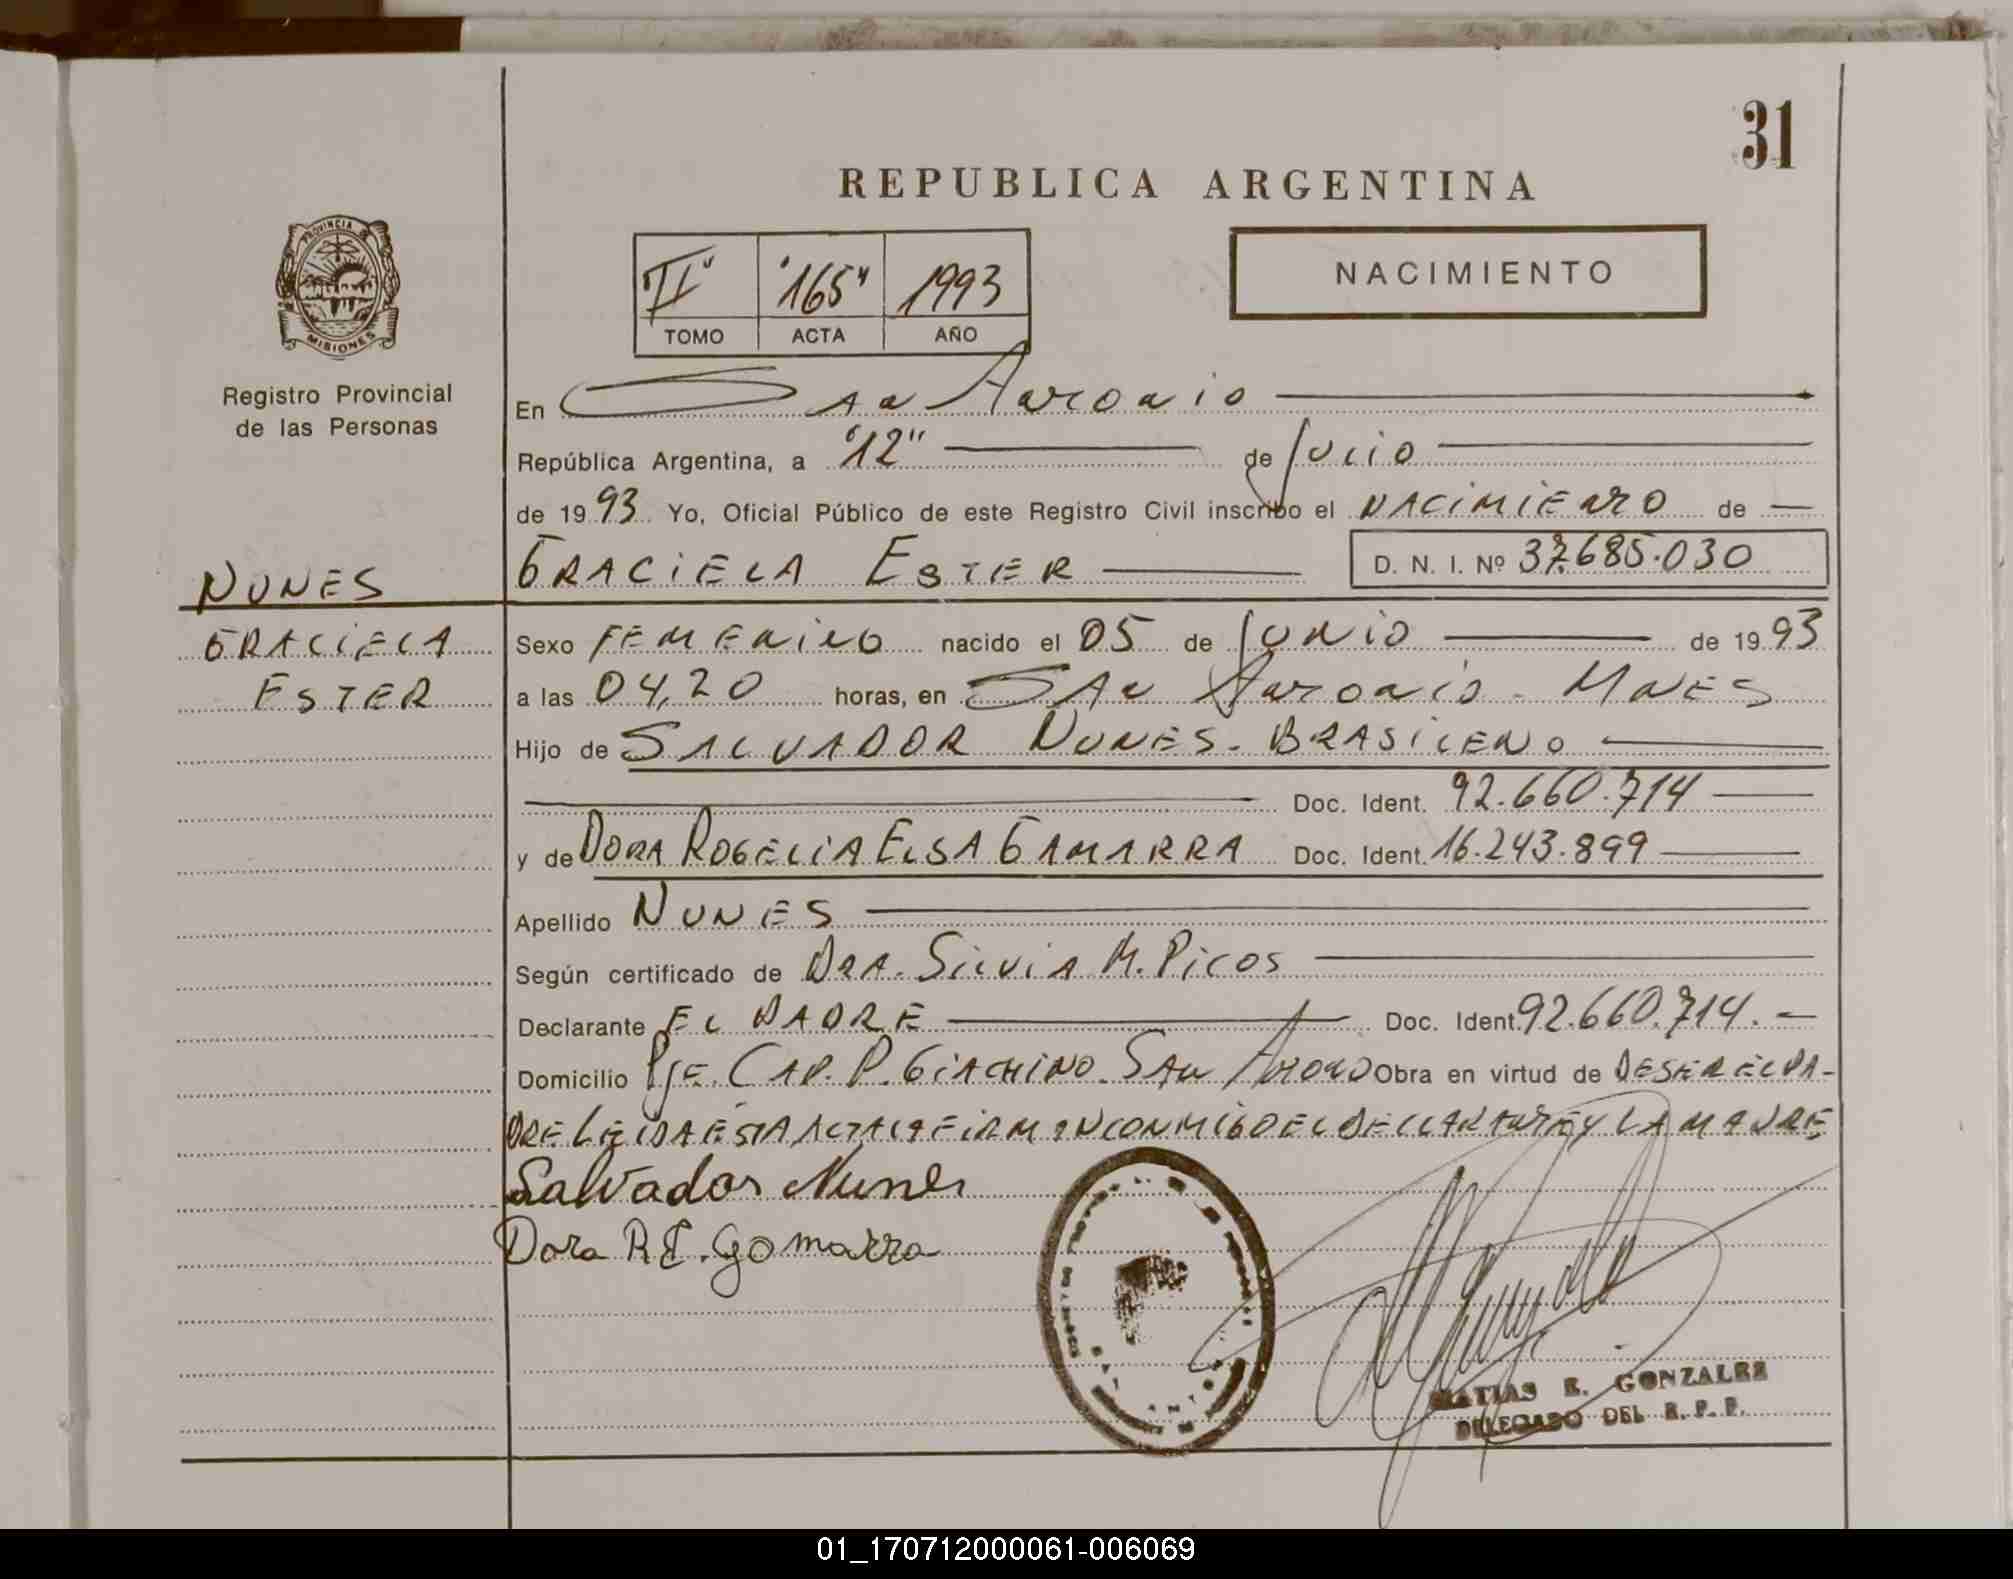 31
REPUBLICA ARGENTINA
PROVINCIA DE
MISIONES
Registro Provincial
de las Personas
"II" "165" 1993
TOMO ACTA AÑO
NACIMIENTO
En San Antonio
República Argentina, a "12" de Julio
de 1993 Yo, Oficial Público de este Registro Civil inscribo el NACIMIENTO de
GRACIELA ESTER D. N. I. Nº 37.685.030
NUNES
GRACIELA
ESTER
Sexo FEMENINO nacido el 05 de JUNIO de 1993
a las 04,20 horas, en SAN ANTONIO - MNES
Hijo de SALVADOR NUNES - BRASILEÑO
Doc. Ident. 92.660.714
y de DORA ROGELIA ELSA GAMARRA Doc. Ident. 16.243.899
Apellido NUNES
Según certificado de DRA. SILVIA M. PICOS
Declarante EL PADRE Doc. Ident. 92.660.714.-
Domicilio Pje. CAP. P. GIACHINO - SAN Obra en virtud de DE SER EL PA-
DRE LEIDA ESTA ACTA LA FIRMAN CONMIGO EL DECLARANTE Y LA MADRE
Salvador Nunes
Dora R E. Gomarra
MATIAS R. GONZALEZ
DELEGADO DEL R. P. P.
01_170712000061-006069